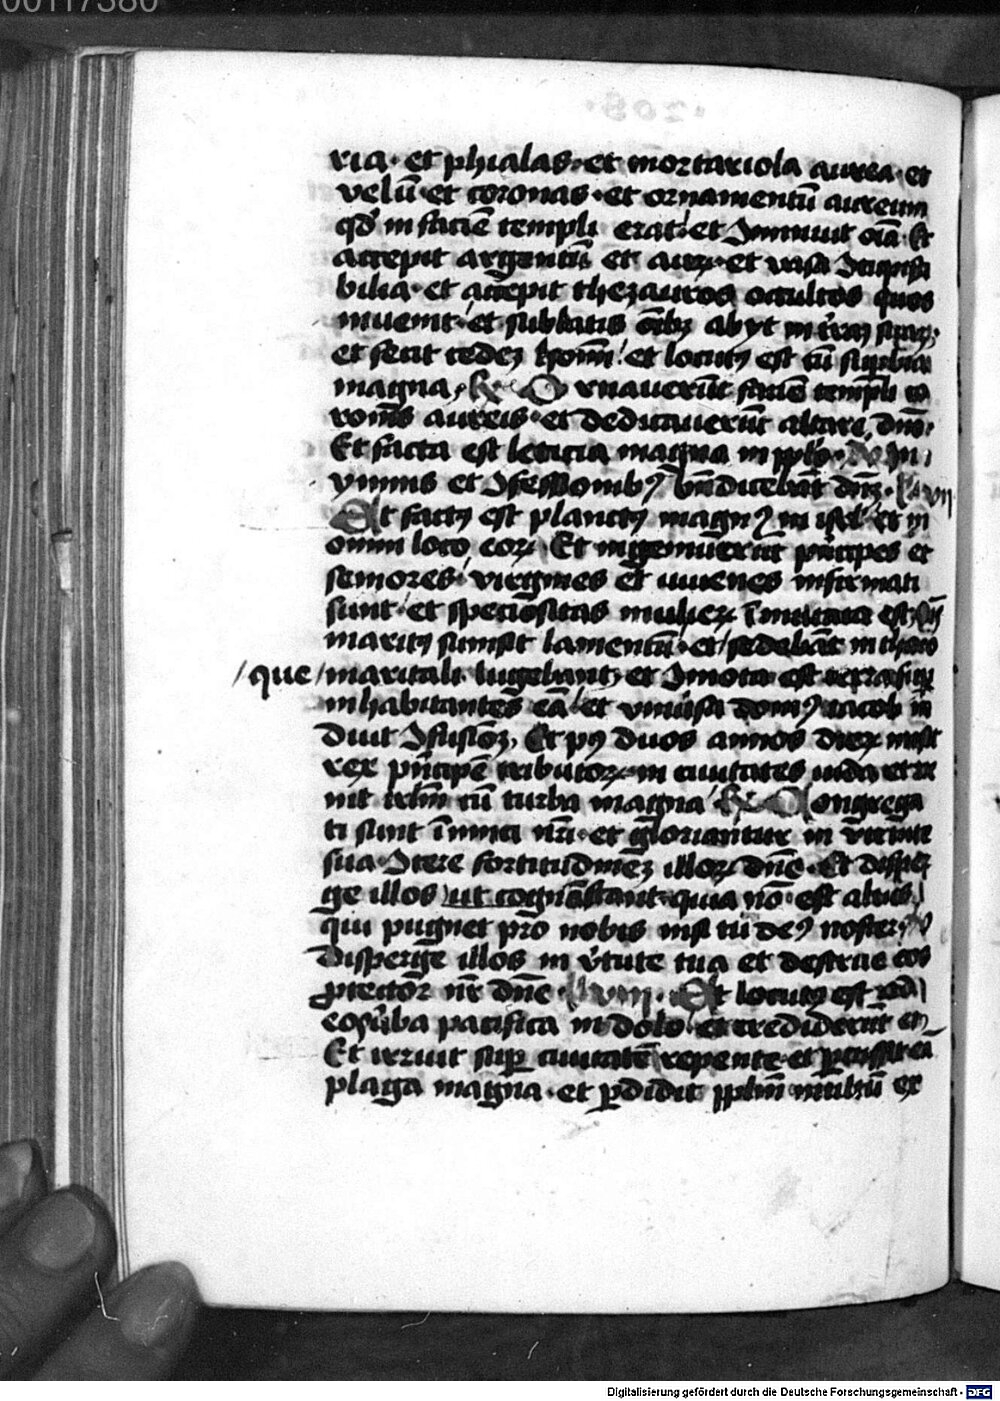 00117380
ria · et phialas · et mortariola aurea · et
velū · et coronas · et ornamentū aureum
qđ in faciē templi erat · et Iminuit oīa · Et
accepit argentū et aurꝝ · et vasa Icupisci
bilia · et accepit thezauros ocultos quos
invenit · et sublatis oībꝫ abyt in trāꝫ suaꝫ ·
et fecit cedeꝫ hoīm · et locutꝰ est cū supbia
magna · ℟ Ornauerūt faciē templi co
ronīs aureis · et dedicauerūt altare dnō ·
Et facta est leticia magna in pplo · ℣ In
ymnis et Ifessionibꝰ bn̄dicebāt dn̄ꝫ ·
Et factꝰ est planctꝰ magnꝰ in isrl et in
omni loco eorꝝ · Et ingemuerūt pncipes et
seniores · virgines et iuuenes infirmati
sunt · et speciositas mulierꝝ īmutata est · Oīs
maritꝰ sumsit lamentū · et sedebāt in thoro
/que/ maritali lugebant · et Imota est terra sup
inhabitantes eā · et vniuisa domꝰ iacob in
duit Ifusionē · Et pꝰ duos annos dierꝝ misit
rex pncipē tributorꝝ in ciuitates iuda et ve
nit irlm cū turba magna · ℟ Congrega
ti sunt īimici nrī · et gloriantur in v̄tute
sua · Itere fortitudinēꝫ illorꝝ dnē · Et disper
ge illos ut cognoscant · quia nō est alius
qui pugnet pro nobis nisi tū deꝰ noster · ℣
Disperge illos in v̄tute tua et destrue eos
ptector nr̄ dnē · Et locutꝰ est ad
eos v̄ba pacifica in dolo · et crediderūt ei
Et irruit sup ciuitatē repente · et pcussit eā
plaga magna · et pdidit pplm multū ex
Digitalisierung gefördert durch die Deutsche Forschungsgemeinschaft - DFG